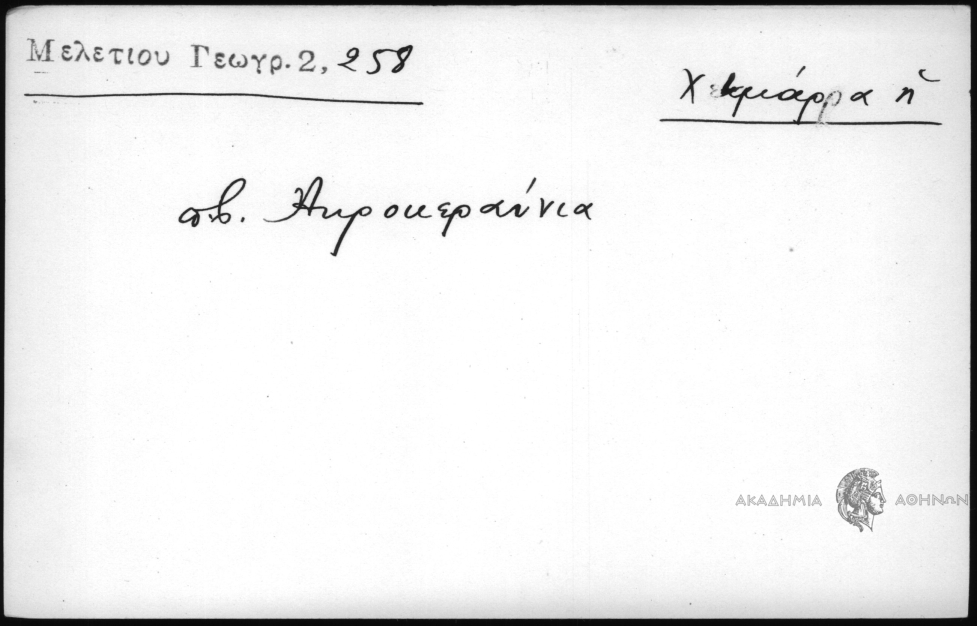 Μελετιου Γεωγρ. 2, 258
Χειμάρρα ἡ
π.β. Ἀκροκεραύνια
ΑΚΑΔΗΜΙΑ ΑΘΗΝΩΝ